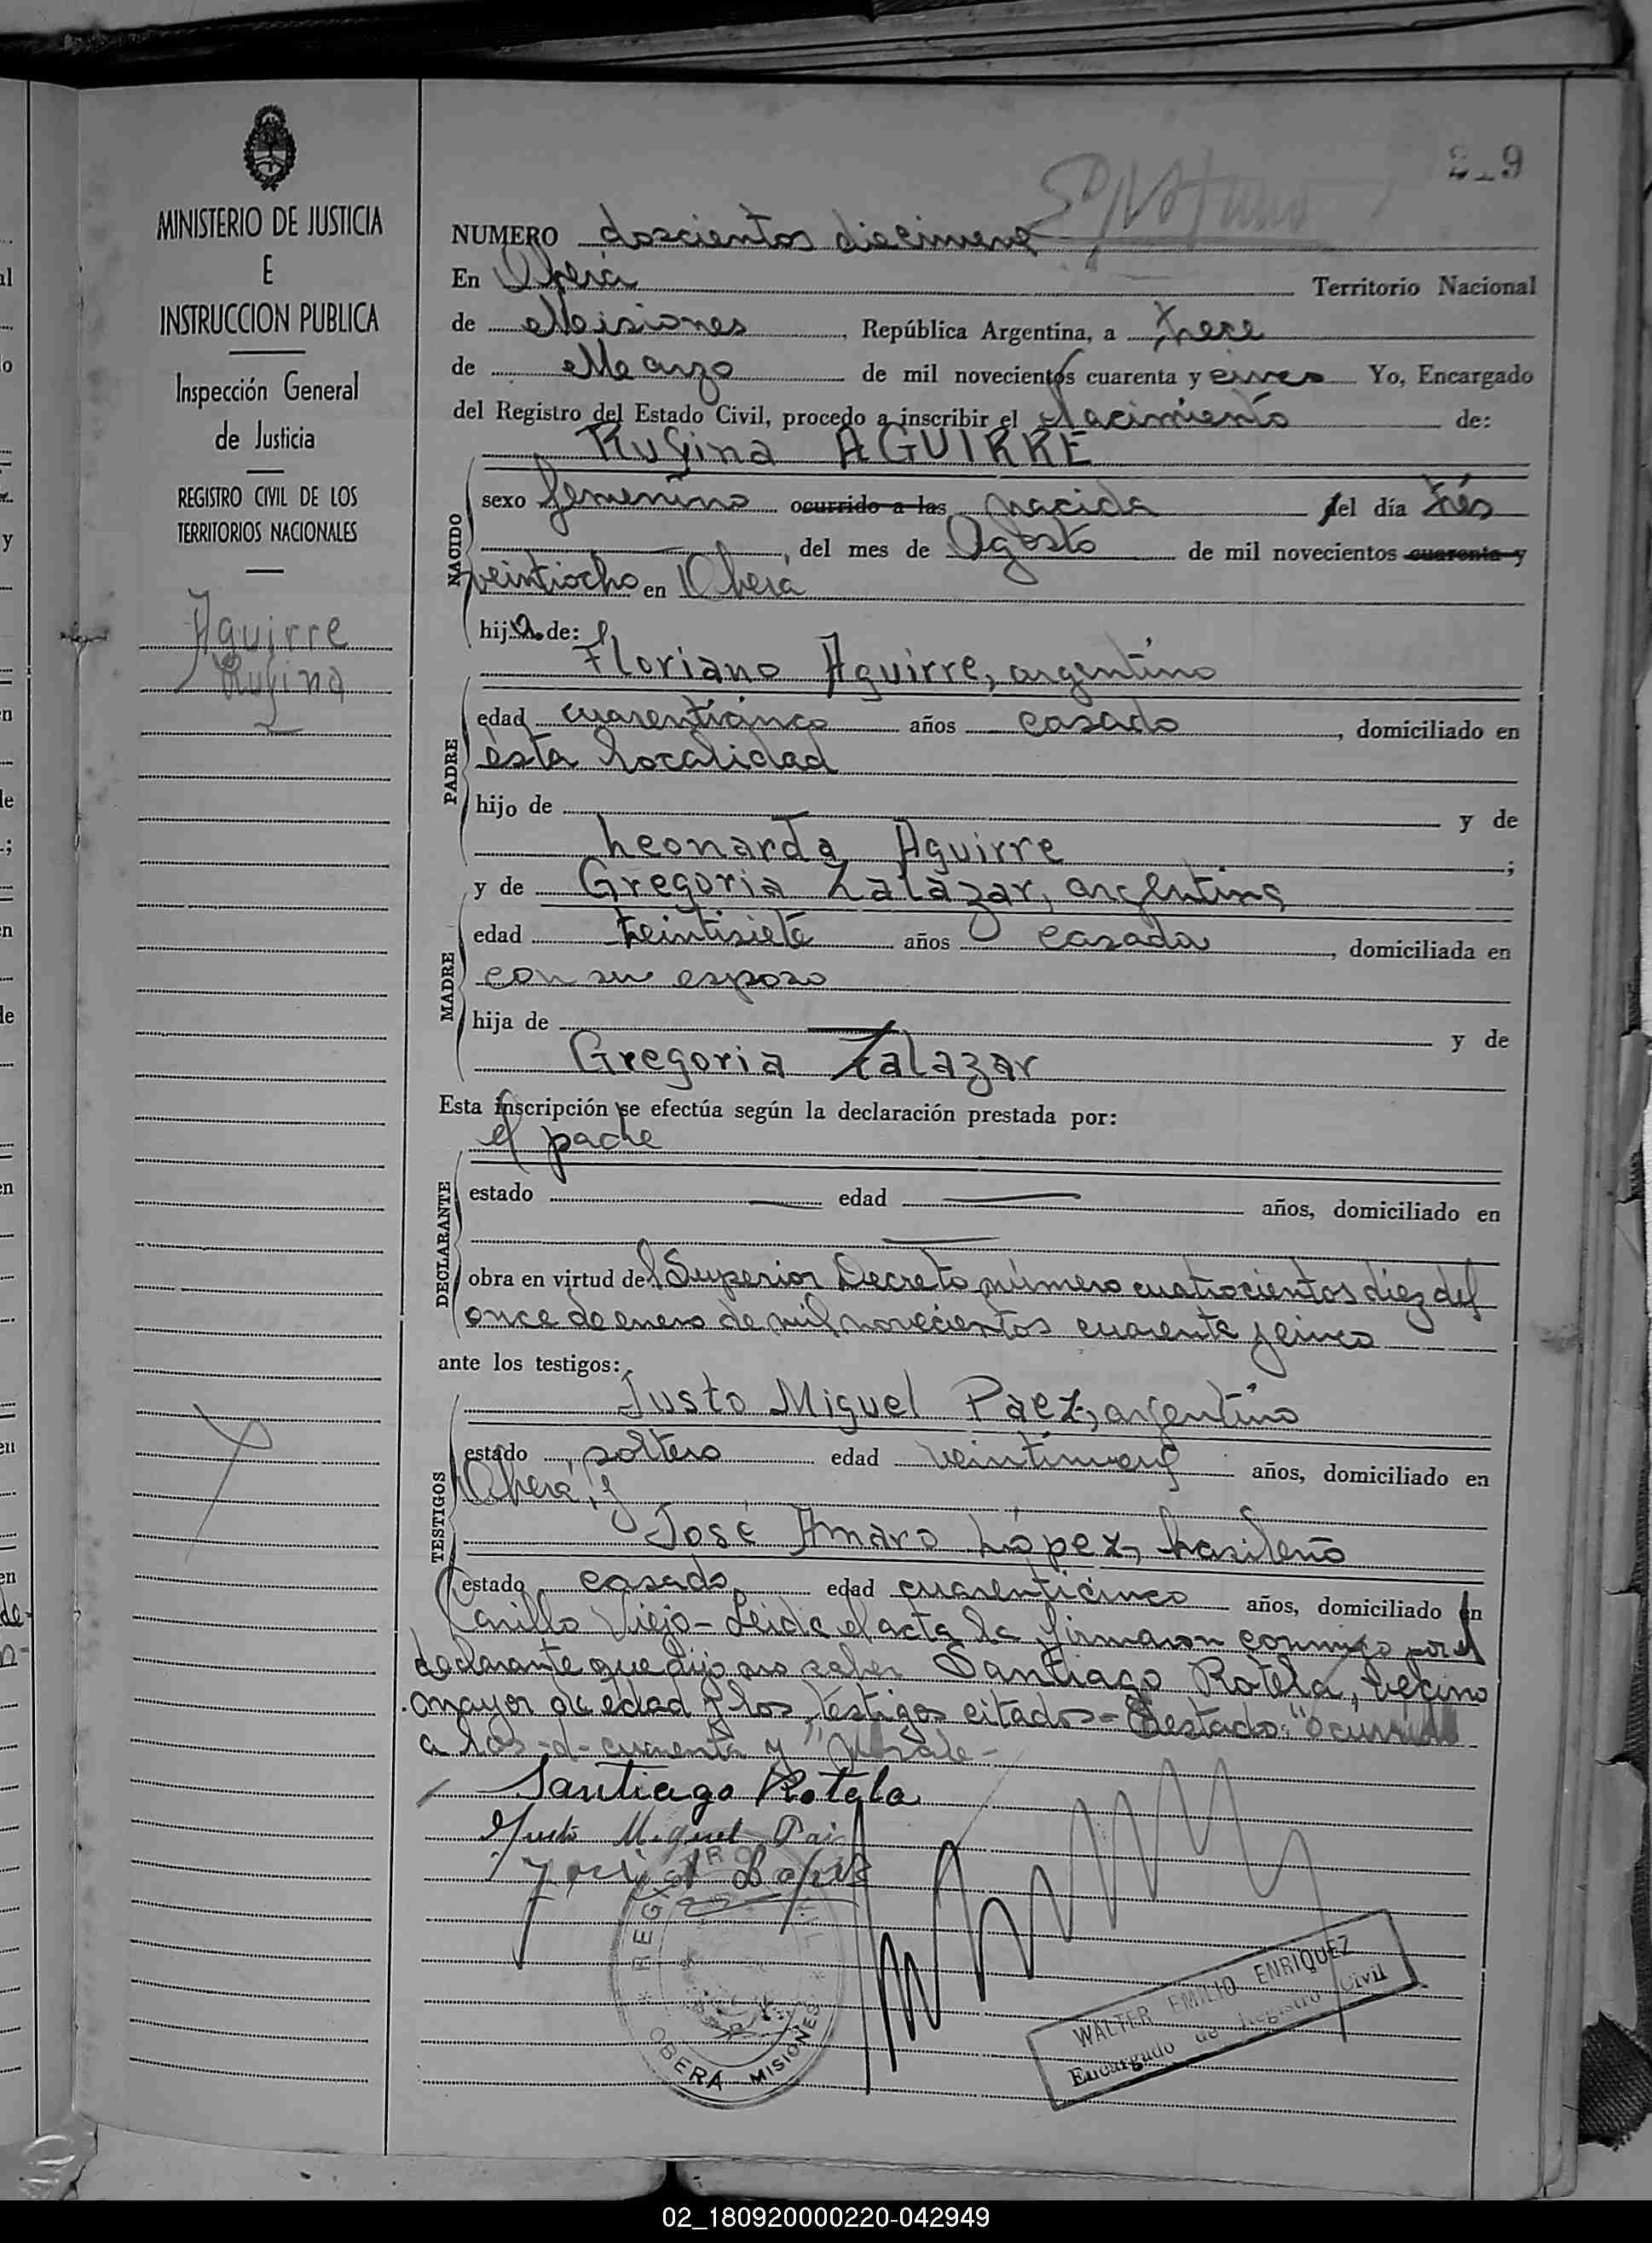 2_9
MINISTERIO DE JUSTICIA
E
INSTRUCCION PUBLICA
Inspección General
de Justicia
REGISTRO CIVIL DE LOS
TERRITORIOS NACIONALES
Aguirre
Rufina
NUMERO doscientos diecinueve
En Oberá Territorio Nacional
de Misiones, República Argentina, a trece
de Marzo de mil novecientos cuarenta y cinco Yo, Encargado
del Registro del Estado Civil, procedo a inscribir el Nacimiento de:
Rufina AGUIRRE
NACIDO
sexo femenino ocurrido a las nacida del día trés
, del mes de Agosto de mil novecientos cuarenta y
veintiocho en Oberá
hija de:
Floriano Aguirre, argentino
PADRE
edad cuarenticinco años casado, domiciliado en
ésta localidad
hijo de y de
Leonarda Aguirre;
y de Gregoria Zalazar, argentina
MADRE
edad treintisiete años casada, domiciliada en
con su esposo
hija de y de
Gregoria Zalazar
Esta inscripción se efectúa según la declaración prestada por:
el padre
DECLARANTE
estado edad años, domiciliado en
obra en virtud del Superior Decreto número cuatrocientos diez del
once de enero de mil novecientos cuarenta y cinco
ante los testigos:
Justo Miguel Paez, argentino
TESTIGOS
estado soltero edad veintinueve años, domiciliado en
Oberá, y
José Amaro López, brasileño
estado casado edad cuarenticinco años, domiciliado en
Carillo Viejo - Leida el acta la firmaron conmigo por el
declarante que dijo no saber Santiago Rotela, vecino
mayor de edad y los testigos citados - Testado: "ocurrido
a las - d - cuarenta y" No vale -
Santiago Rotela
Justo Miguel Paez
José A Lopez
REGISTRO CIVIL
OBERA MISIONES
WALTER EMILIO ENRIQUEZ
Encargado de Registro Civil
02_180920000220-042949